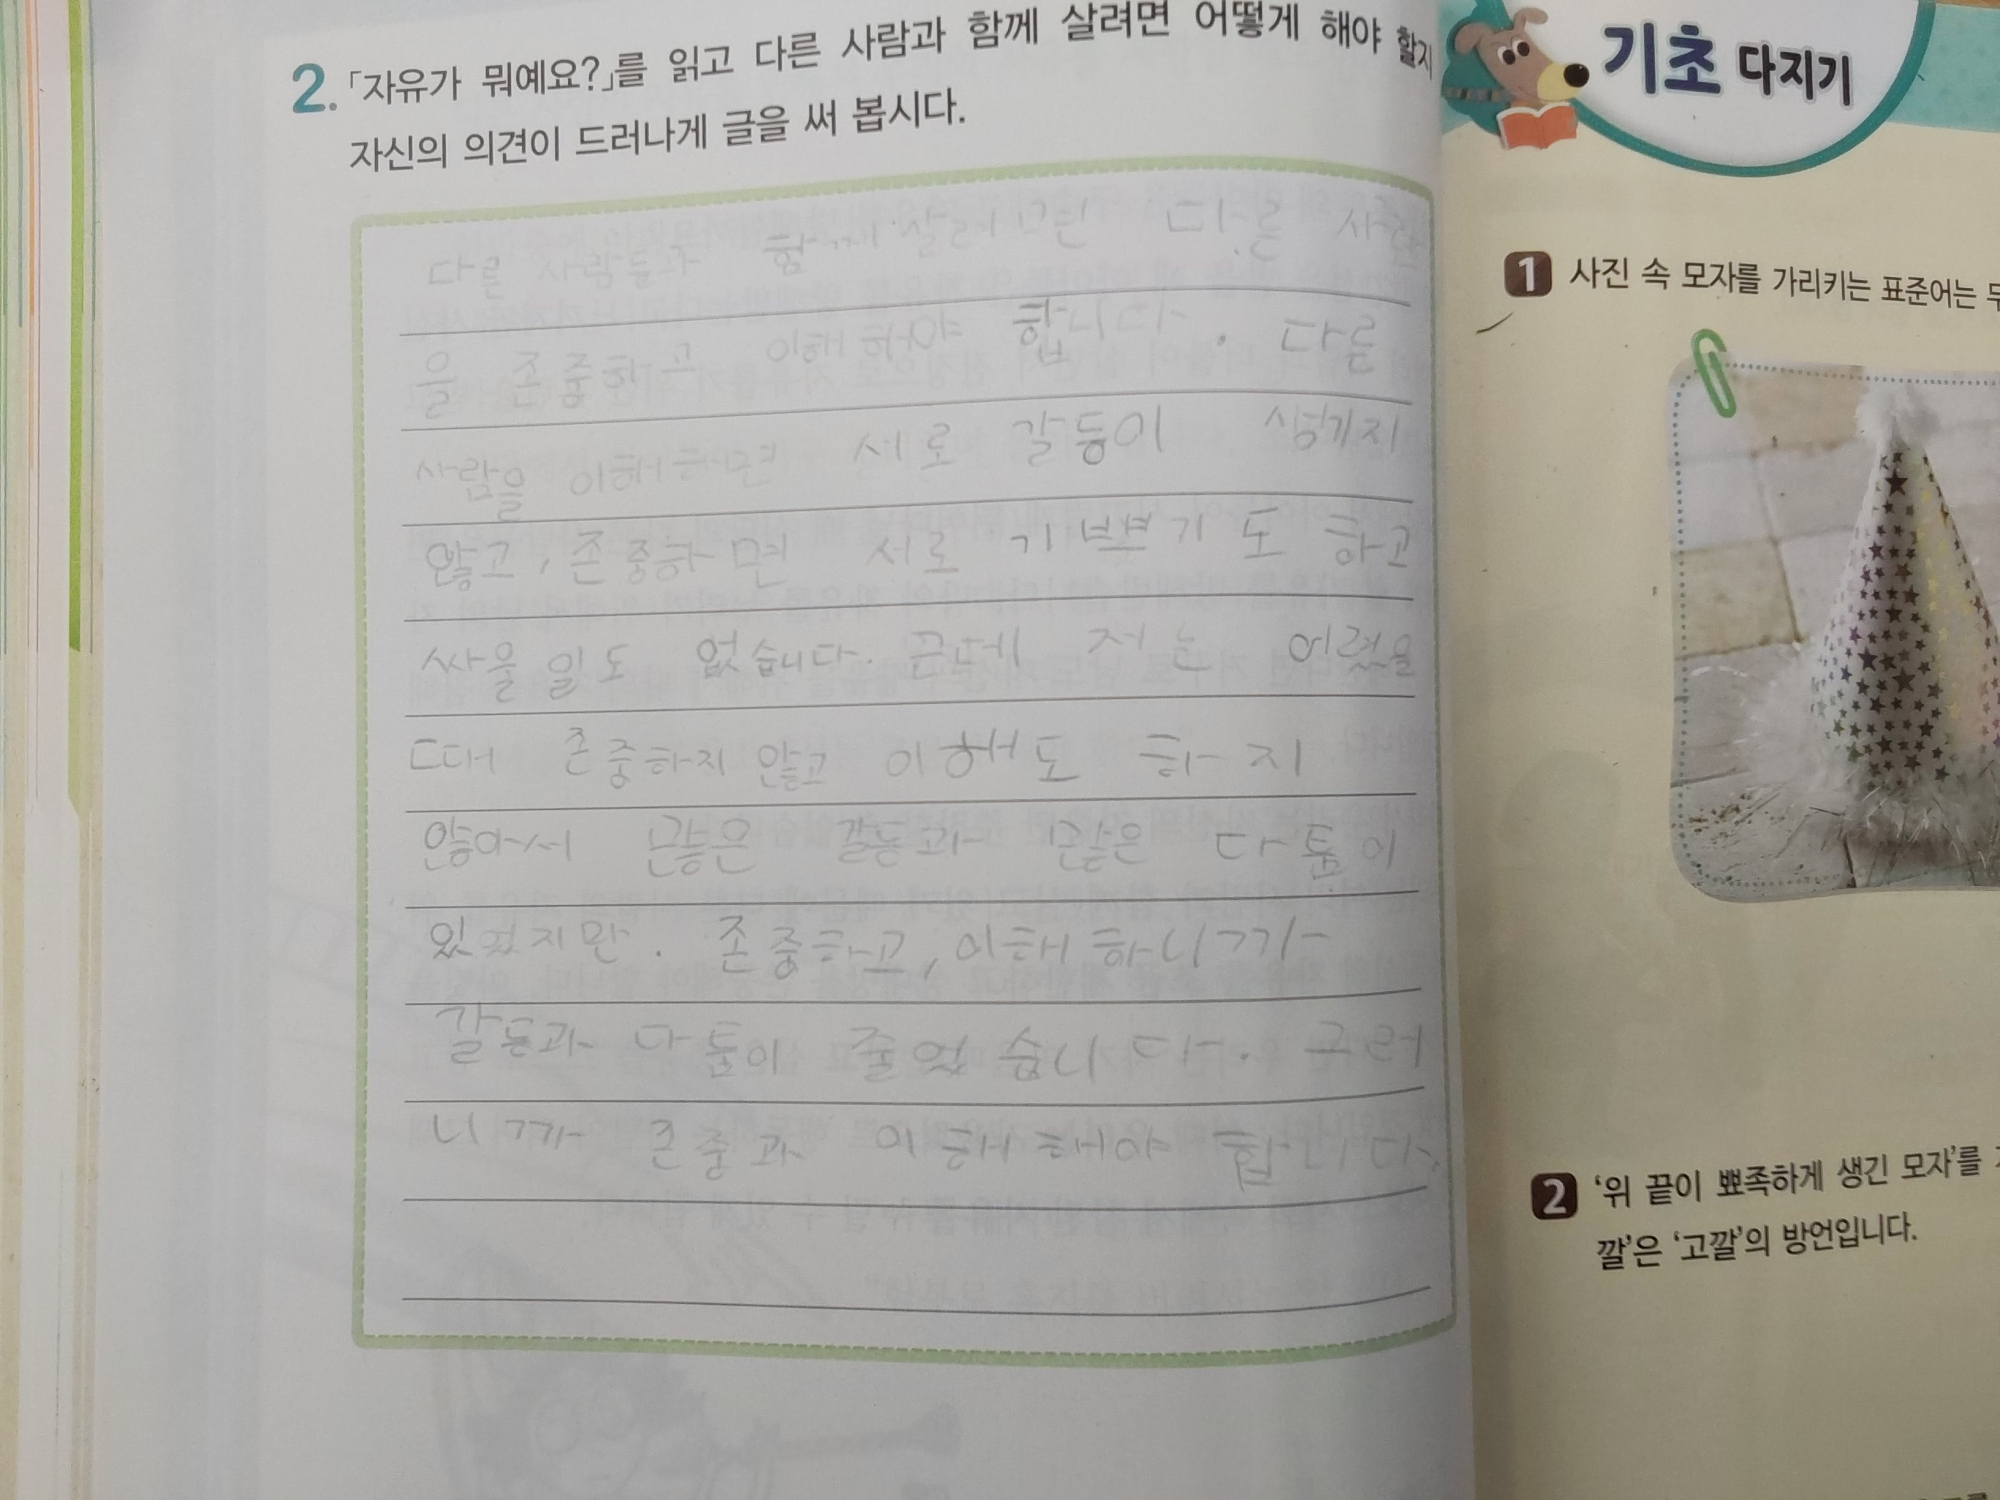 2. 「자유가 뭐예요?」를 읽고 다른 사람과 함께 살려면 어떻게 해야 할지
자신의 의견이 드러나게 글을 써 봅시다.
다른 사람들과 함께 살려면 다른 사람
을 존중하고 이해해야 합니다. 다른
사람을 이해하면 서로 갈등이 생기지
않고, 존중하면 서로 기쁘기도 하고
싸울 일도 없습니다. 근데 저는 어렸을
때 존중하지 않고 이해도 하지
않아서 많은 갈등과 많은 다툼이
있었지만. 존중하고, 이해하니까
갈등과 다툼이 줄었습니다. 그러
니까 존중과 이해해야 합니다.
기초 다지기
1 사진 속 모자를 가리키는 표준어는
2 '위 끝이 뾰족하게 생긴 모자'를
깔'은 '고깔'의 방언입니다.